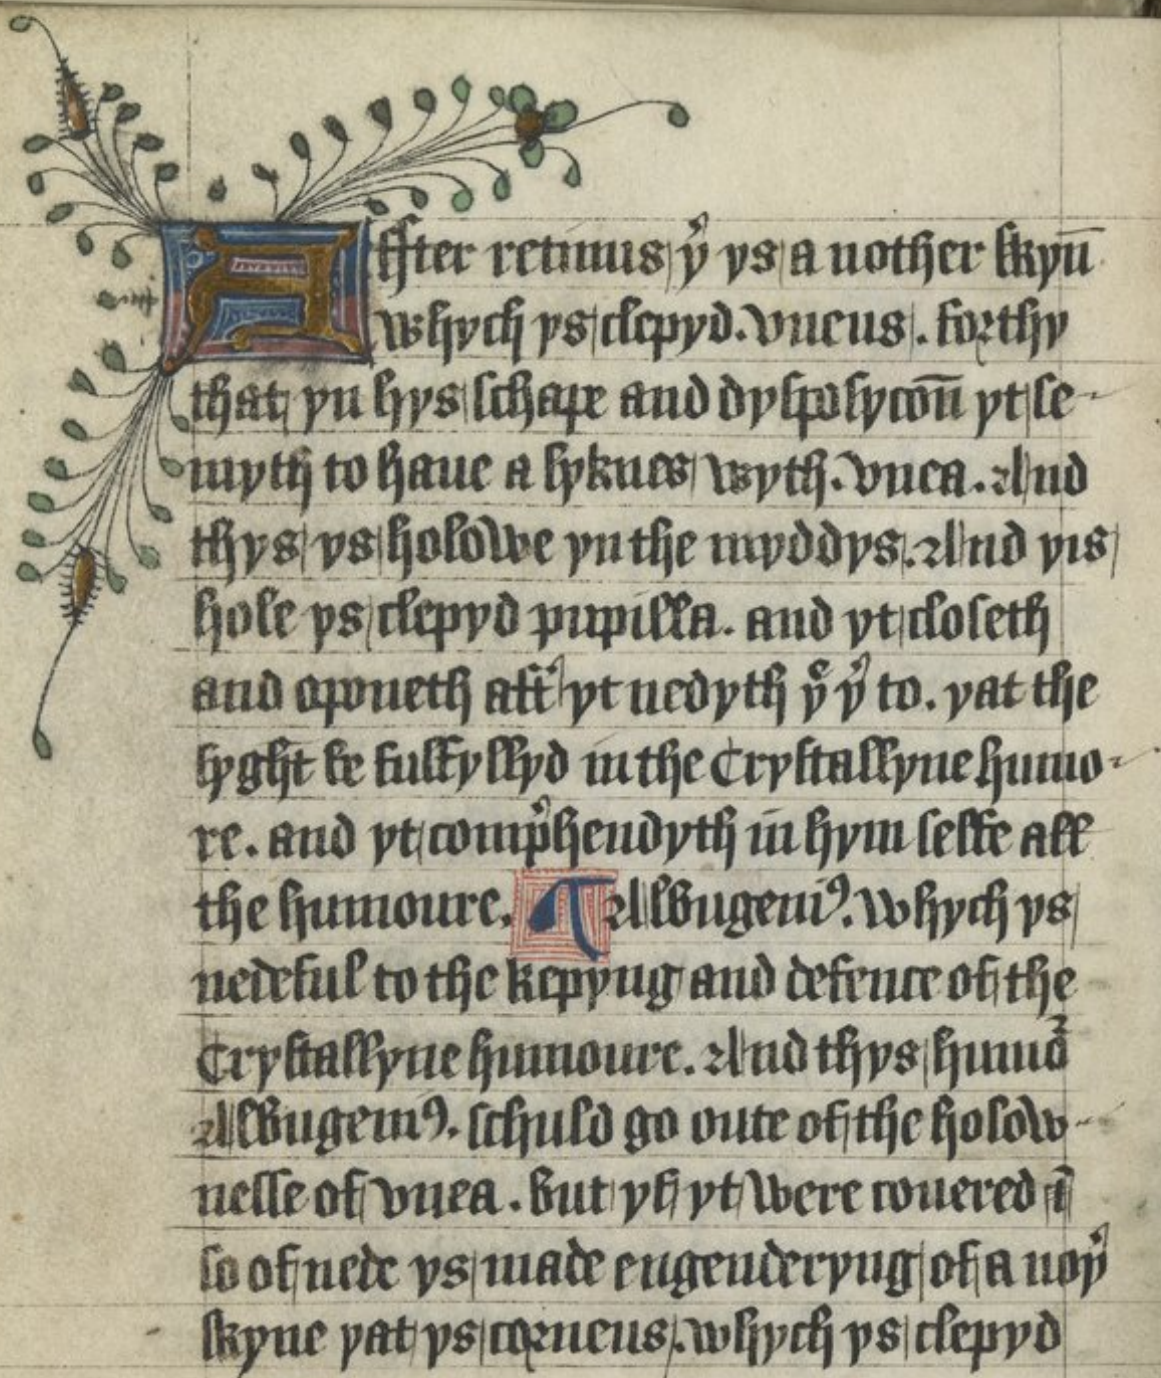 Affter retinus yͬ ys a nother skyn̄
whych ys clepyd. vneus. forthy
that yn hys schape and dysposycōn yt se-
myth to haue a lyknes wyth. vuea. And
thys ys holowe yn the myddys. And yis
hole ys clepyd pupilla. and yt closeth
and oponeth aft' yt nedyth yͤ yͬ to. yat the
lyght be fulfyllyd in the Crystallyne humo-
re. and yt comp'hendyth in hym selfe all
the humoure. Albugeniꝰ. whych ys
nedeful to the kepyng and defence of the
Crystallyne humoure. And thys humoͬ
Albugeniꝰ. schuld go oute of the holow-
nesse of vuea. but yf yt were couered ī
so of nede ys made engenderyng of a noyͬ
skyne yat ys corneus. whych ys clepyd